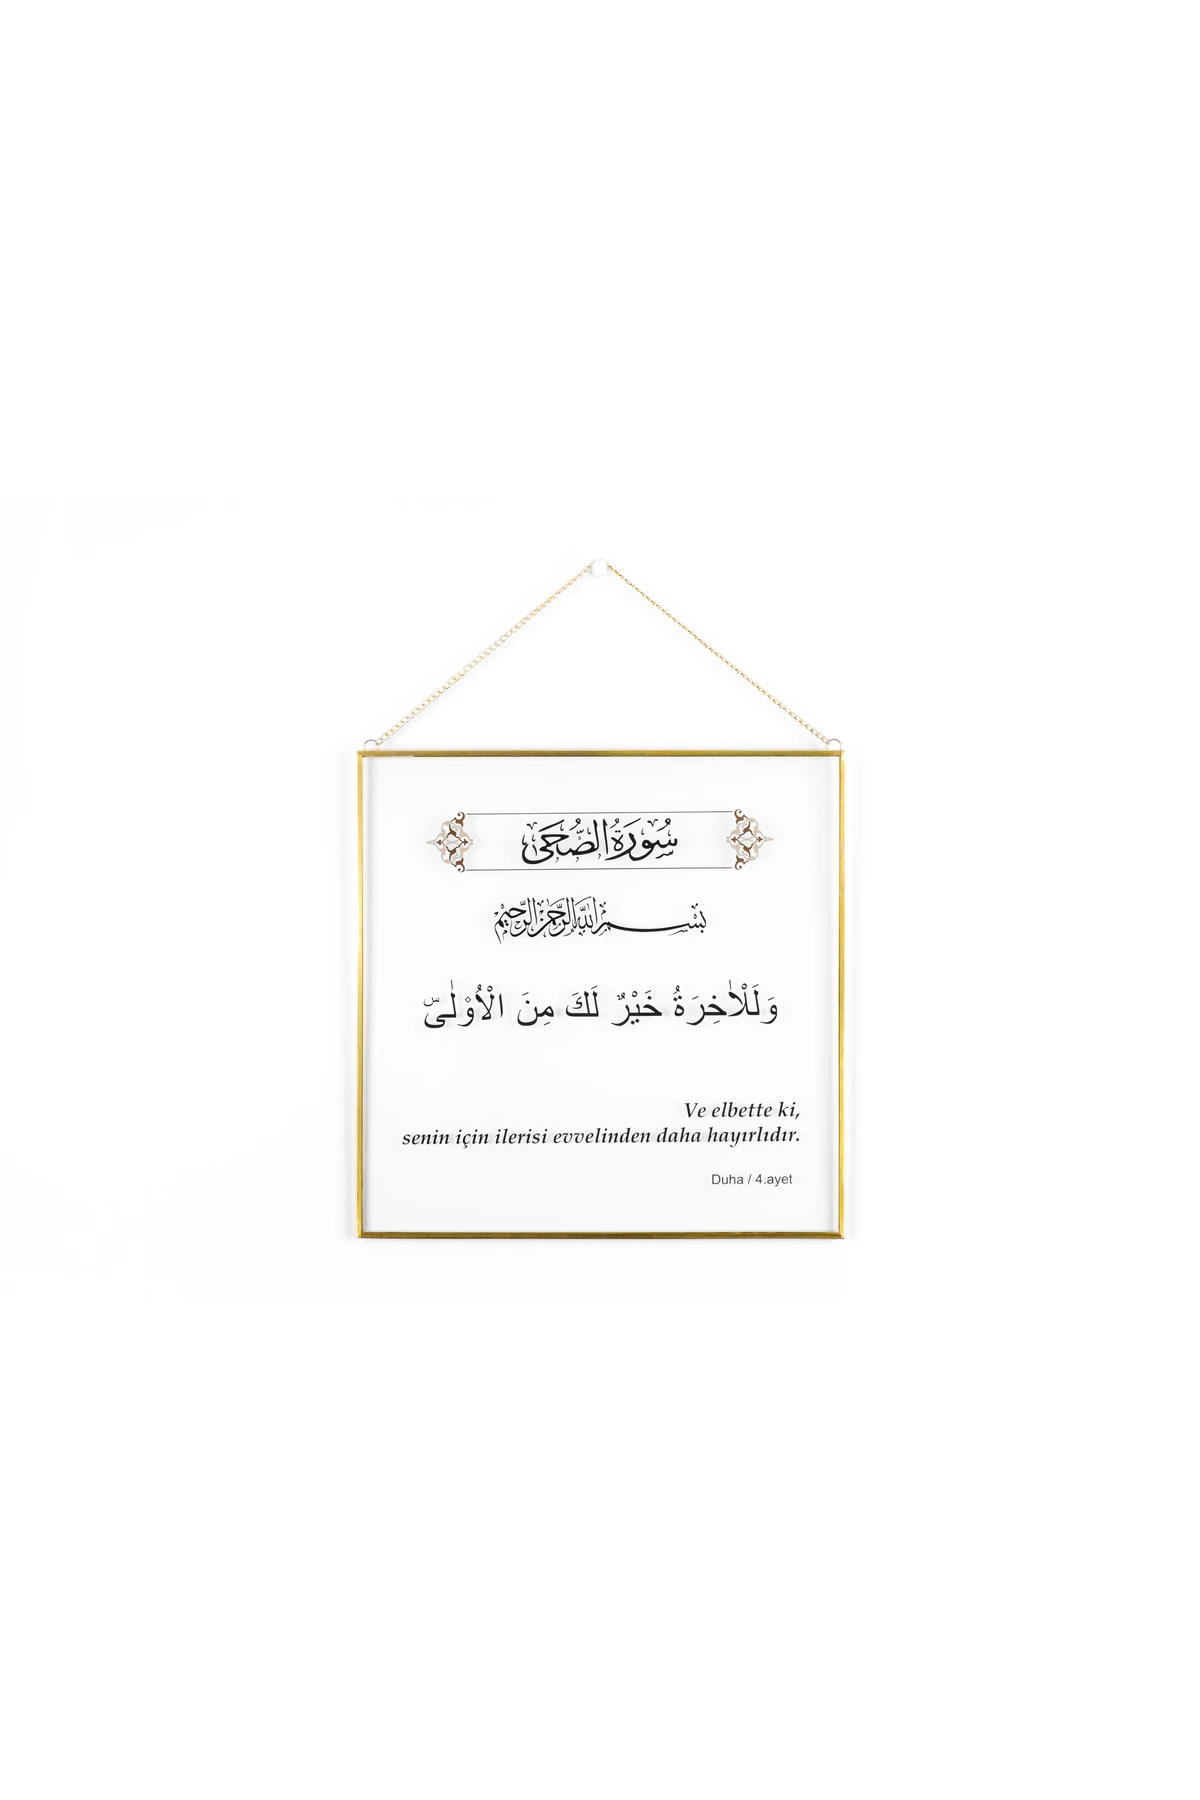 سُورَةُ الضُّحَى
بِسْمِ اللّٰهِ الرَّحْمٰنِ الرَّحِيْمِ
وَلَلْاٰخِرَةُ خَيْرٌ لَكَ مِنَ الْاُوْلٰىۜ
Ve elbette ki,
senin için ilerisi evvelinden daha hayırlıdır.
Duha / 4.ayet